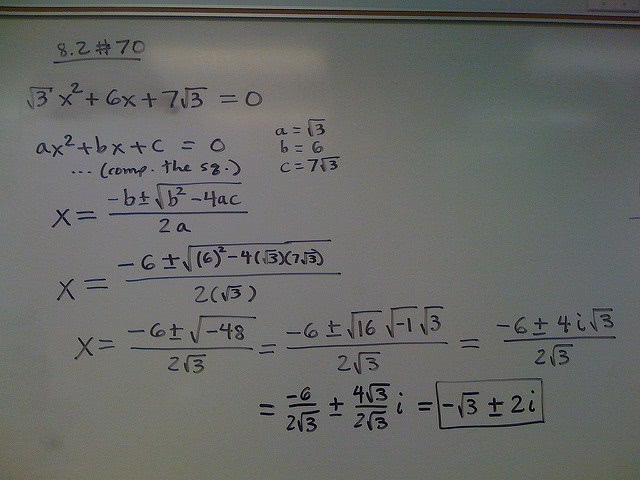 8.2 # 70
√3 x² + 6x + 7√3 = 0
ax² + bx + c = 0
... (comp. the sq.)
a = √3
b = 6
c = 7√3
x = (-b ± √(b² - 4ac)) / 2a
x = (-6 ± √((6)² - 4(√3)(7√3))) / 2(√3)
x = (-6 ± √-48) / 2√3 = (-6 ± √16 √-1 √3) / 2√3 = (-6 ± 4i√3) / 2√3
= -6 / 2√3 ± 4√3 / 2√3 i = -√3 ± 2i